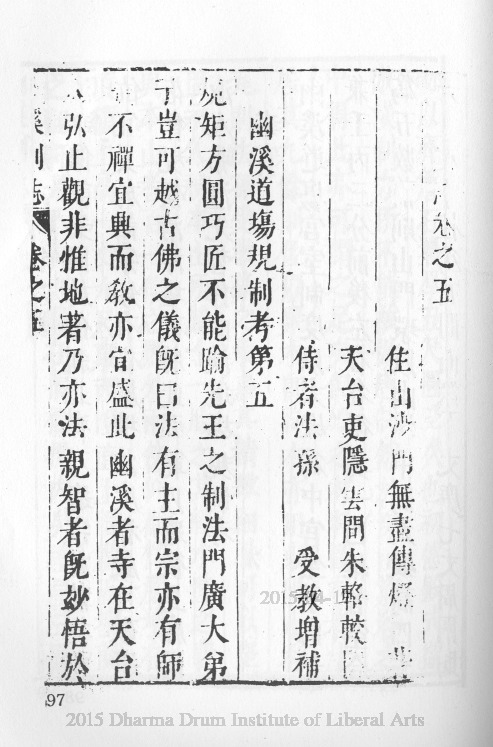 卷之五
住山沙門無盡傳燈著
天台吏隱雲間朱輅較
侍者法孫 受教增補
幽溪道塲規制考第五
規矩方圓巧匠不能踰先王之制法門廣大弟
子豈可越古佛之儀旣曰法有主而宗亦有師
不禪宜興而敎亦宜盛此幽溪者寺在天台
弘止觀非惟地著乃亦法親智者旣妙悟於
溪別志 卷之五
97
2015 Dharma Drum Institute of Liberal Arts